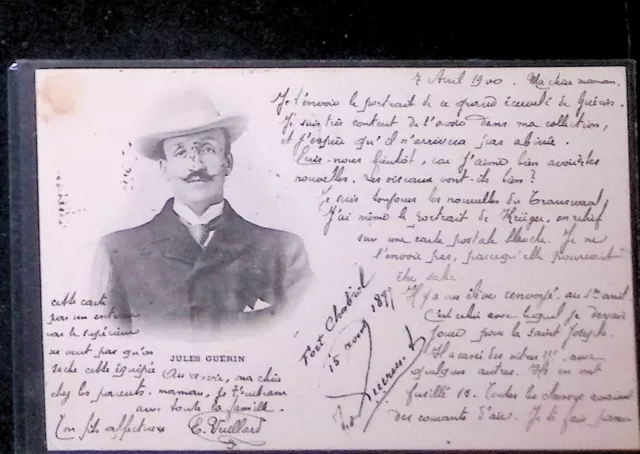 7 Avril 1900. Ma chère maman.
Je t'envoie le portrait de ce grand écervelé de Guérin.
Je suis très content de l'avoir dans ma collection,
et j'espère qu'il n'arrivera pas abîmé.
Écris-nous bientôt, car j'aime bien avoir tes
nouvelles. Les oiseaux vont-ils bien?
Je suis toujours les nouvelles du Transvaal
J'ai même le portrait de Krüger, en relief
sur une carte postale blanche. Je ne
l'envoie pas, parce qu'elle pourrait
être sale.
Il y a un élève renvoyé, au
C'est celui avec lequel je devais
jouer pour la Saint Joseph.
Il a cassé des vitres !!!, avec
quelques autres. Ils en ont
fusillé 15. Toutes les classes avaient
des courants d'air. Je te fais parvenir
cette carte
par un
car le supérieur
ne veut pas qu'on
sache cette équipée
chez les parents.
Au revoir, ma chère
maman, je t'embrasse
ainsi toute la famille.
Ton fils affectueux
E. Vuillard
JULES GUÉRIN
Fort Chabrol
15 août 1899
Guérin